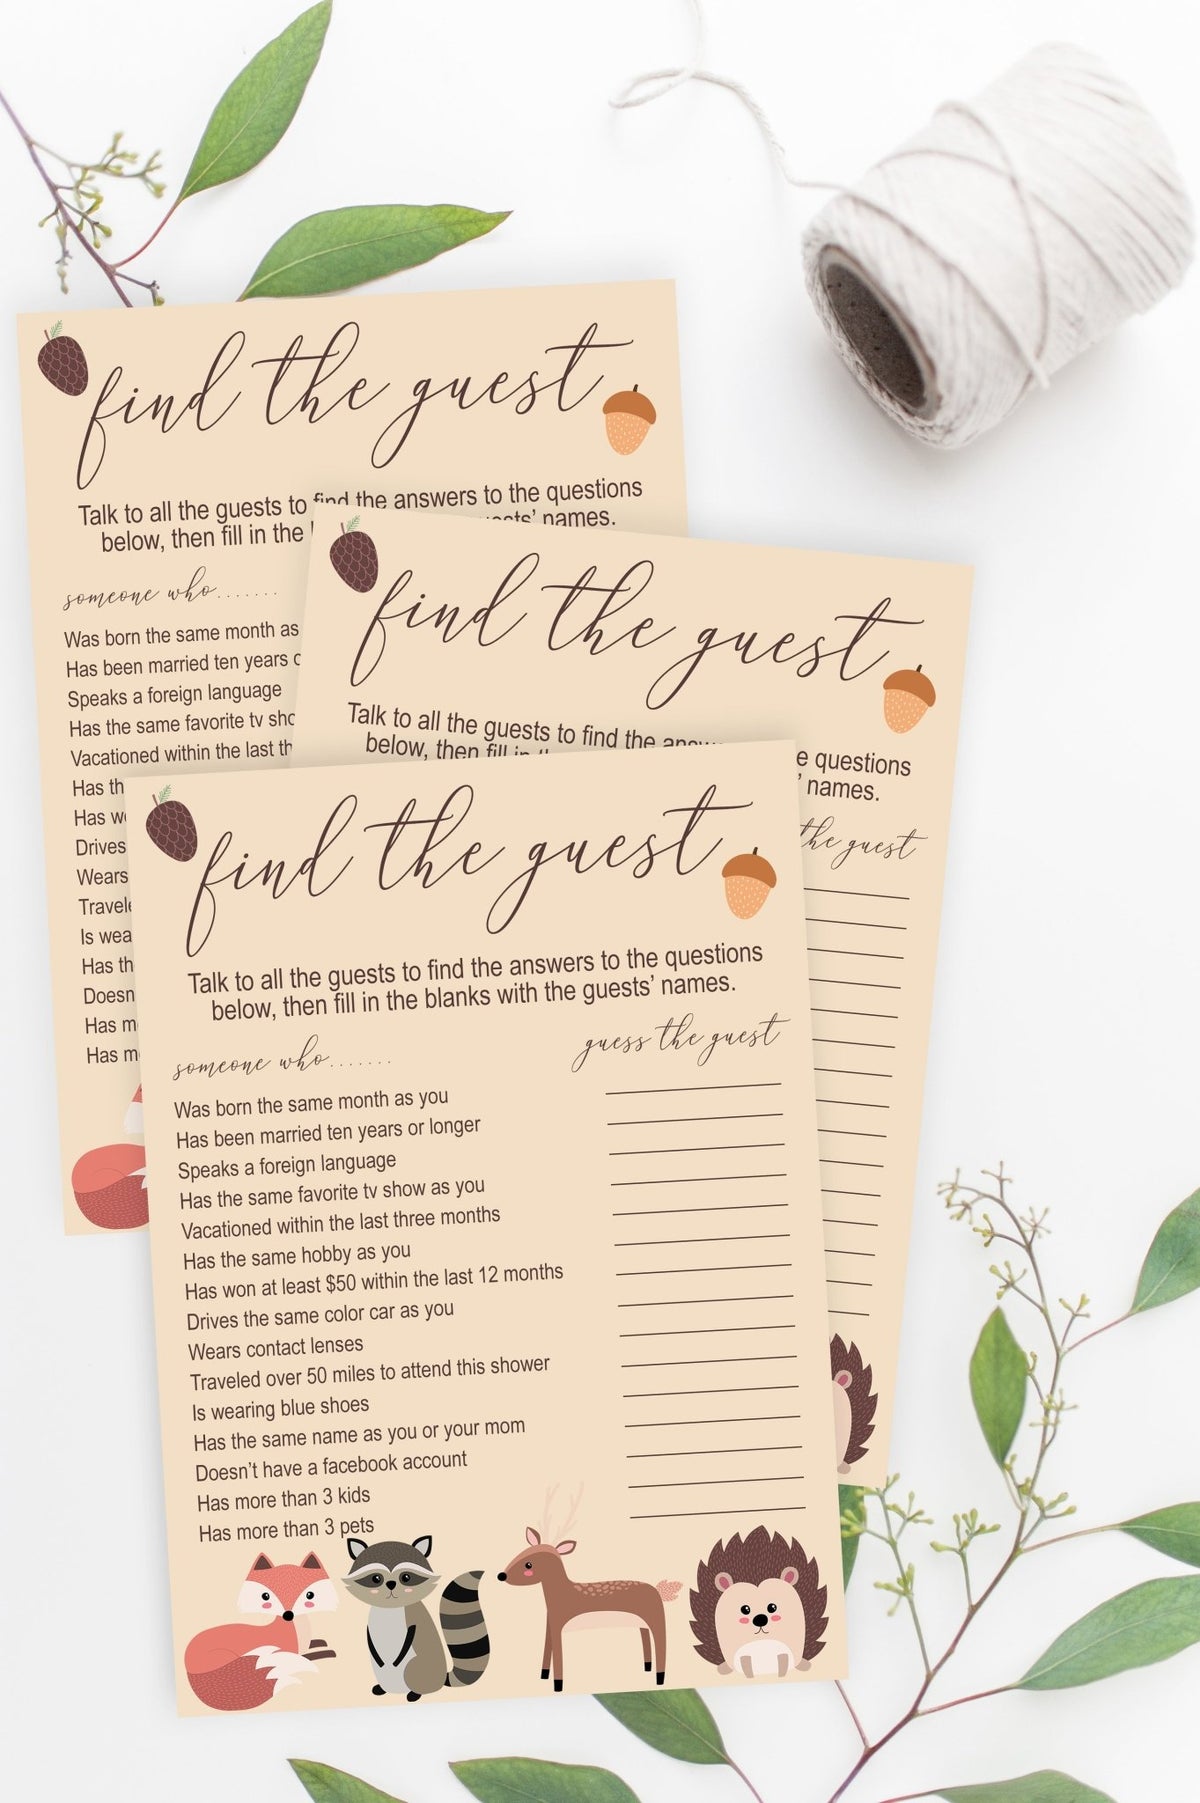 find the guest
Talk to all the guests to find the answers to the questions
below, then fill in the guests' names.
someone who.......
Was born the same month as
Has been married ten years
Speaks a foreign language
Has the same favorite tv
Vacationed within the last
Has
Has
Drives
Wears
Is
Has
Has
Has
find the guest
Talk to all the guests to find the questions
below, then fill names.
the guest
find the guest
Talk to all the guests to find the answers to the questions
below, then fill in the blanks with the guests' names.
someone who....... guess the guest
Was born the same month as you
Has been married ten years or longer
Speaks a foreign language
Has the same favorite tv show as you
Vacationed within the last three months
Has the same hobby as you
Has won at least $50 within the last 12 months
Drives the same color car as you
Wears contact lenses
Traveled over 50 miles to attend this shower
Is wearing blue shoes
Has the same name as you or your mom
Doesn't have a facebook account
Has more than 3 kids
Has more than 3 pets